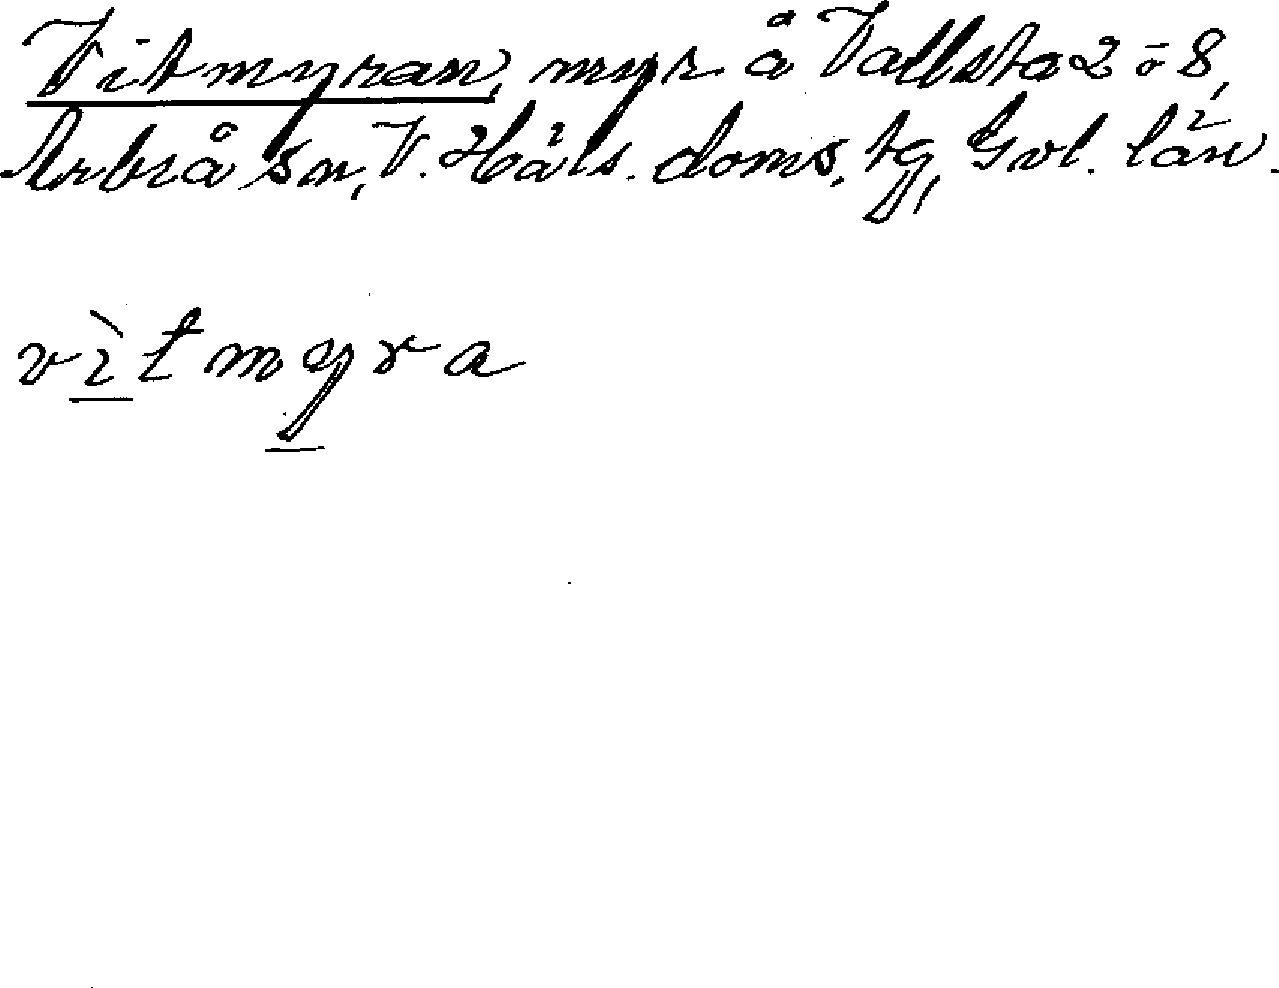 Vitmyran, myr å Vallsta 2 o 8,
Arbrå sn, V. Häls. doms. tg, Gvl. län.
vìtmyra